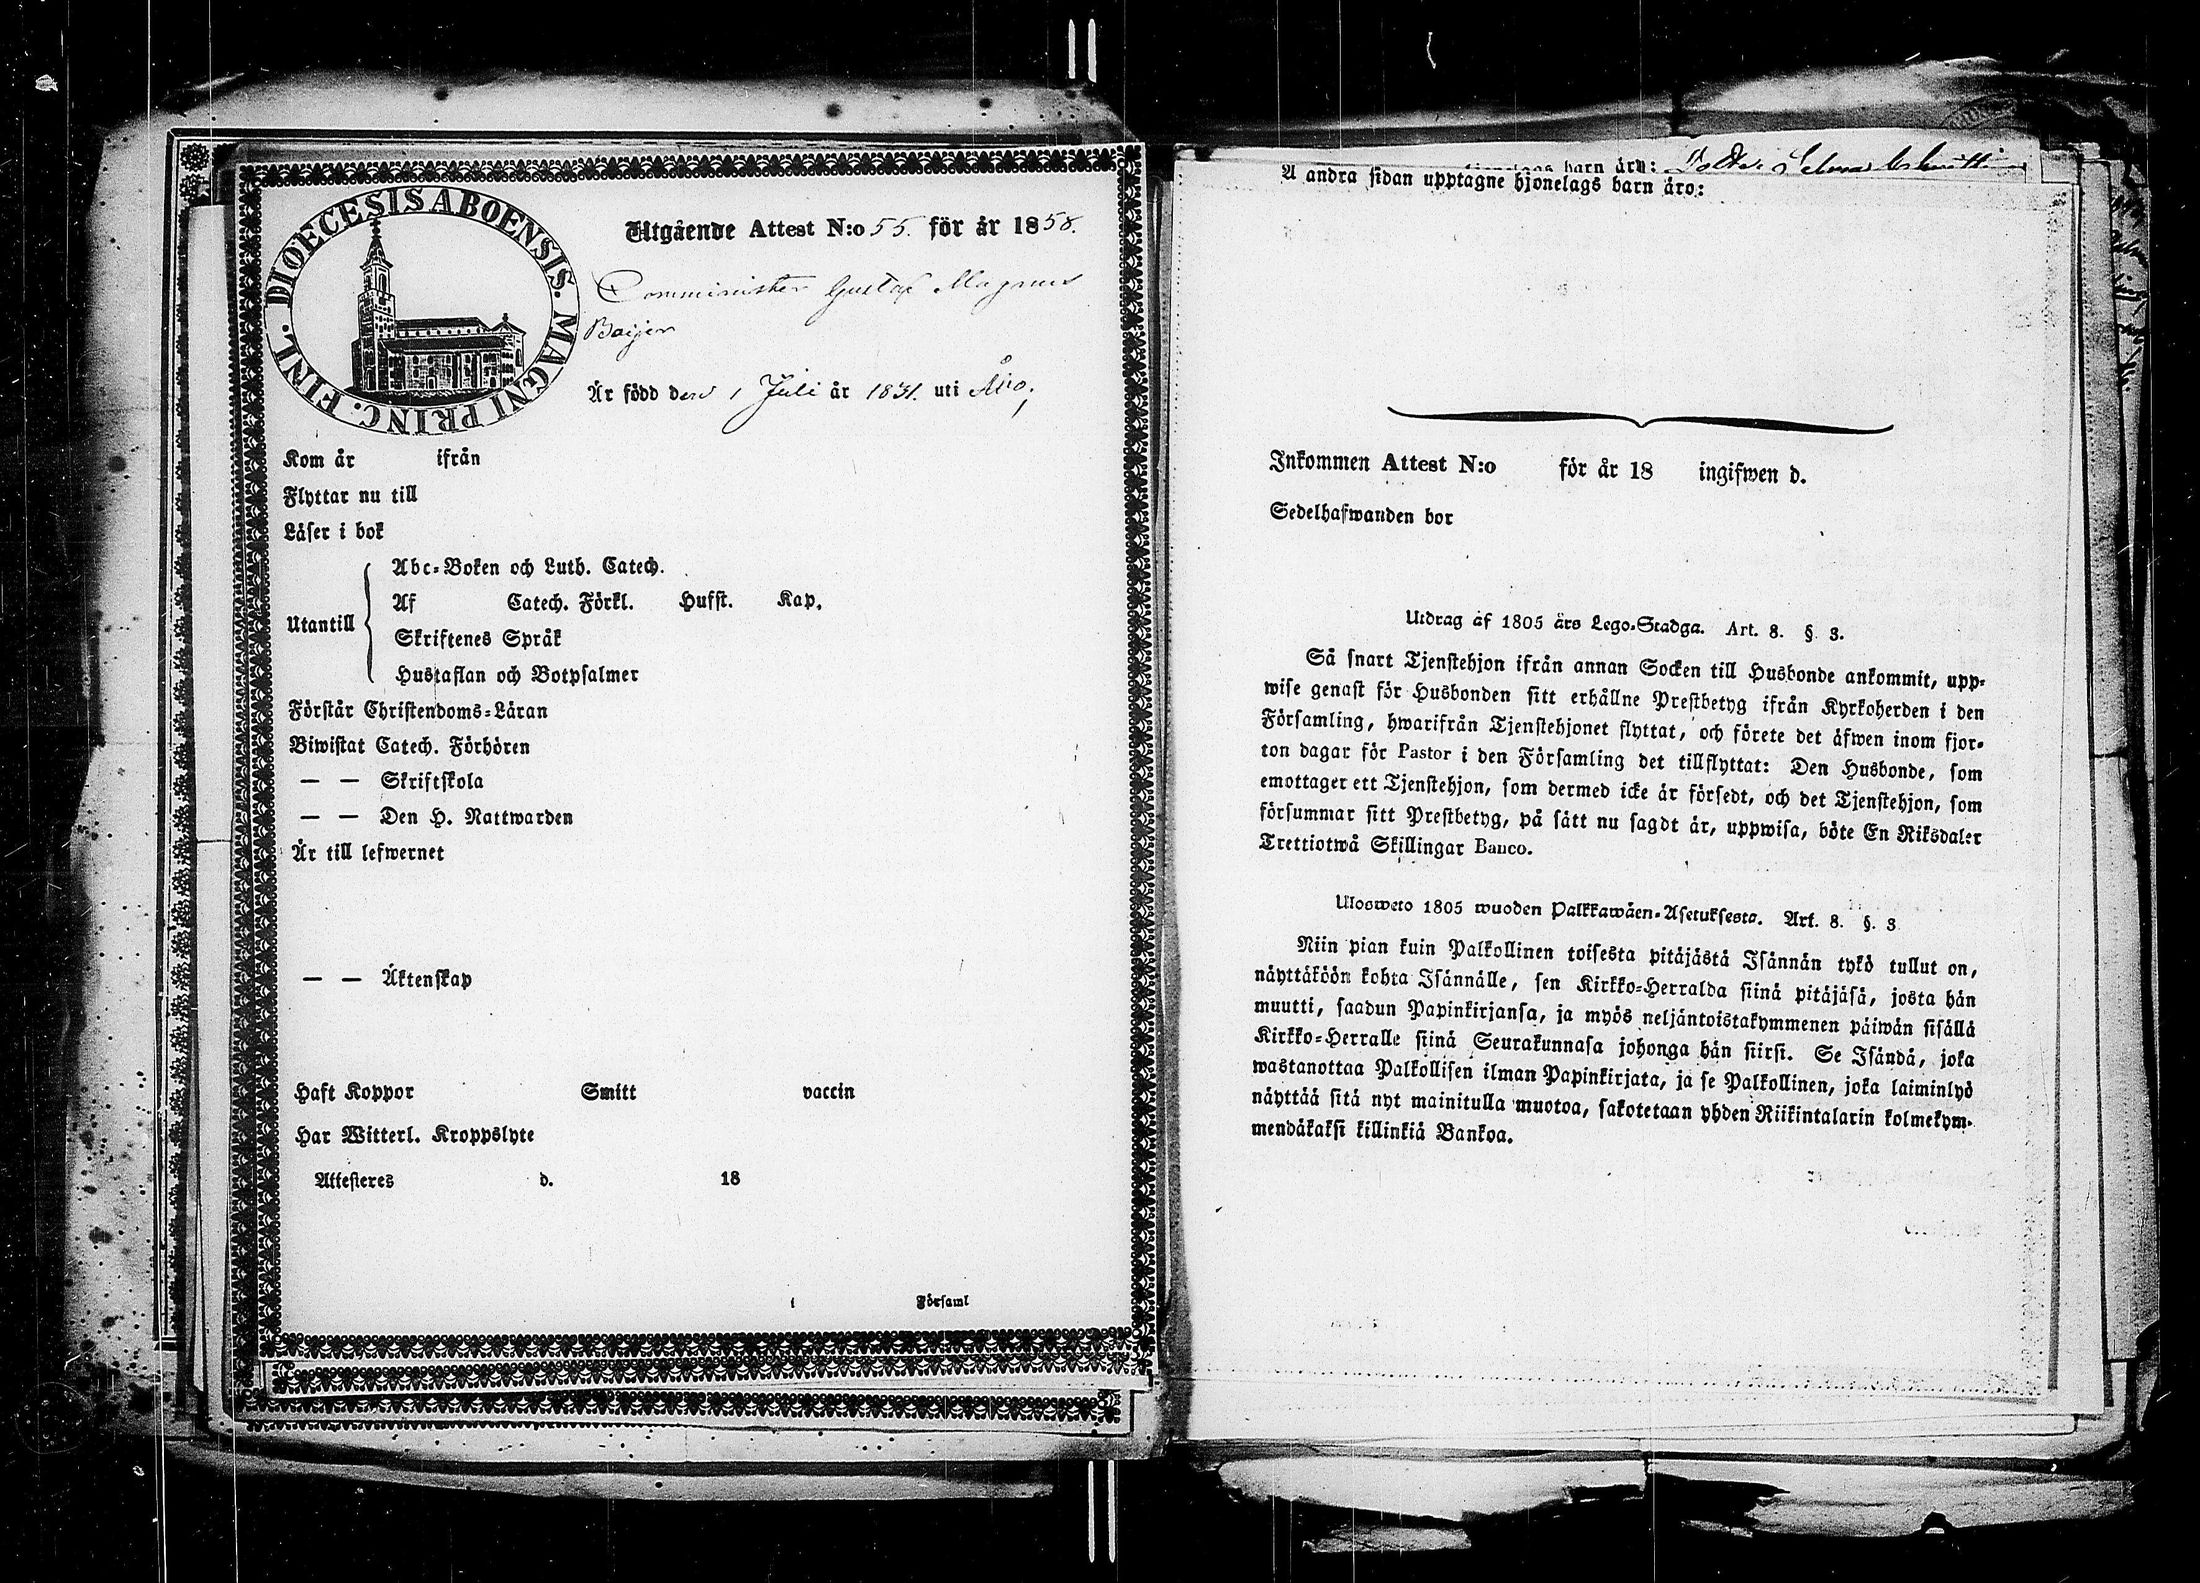 DIOECESIS ABOENSIS. MAGNI PRINC. FINL.
Utgående Attest N:o 55. för år 1858.
Comminister Gustaf Magnus
Baijer
Är född den 1 Juli år 1831. uti Åbo,
Kom år ifrån
Flyttar nu till
Läser i bok
Utantill
Abc-Boken och Luth. Catech.
Af Catech. Förkl. Husst. Kap.
Skriftenes Språk
Hustaflan och Botpsalmer
Förstår Christendoms-Läran
Biwistat Catech. Förhören
— — Skriftskola
— — Den H. Nattwarden
Är till lefwernet
— — Äktenskap
Haft Koppor Smitt vaccin
Har Witterl. Kroppslyte
Attesteres d. 18
i Församl
barn äro: Dotter Selma
Å andra sidan upptagne hjonelags barn äro:
Inkommen Attest N:o för år 18 ingifwen d.
Sedelhafwanden bor
Utdrag af 1805 års Lego-Stadga. Art. 8. § 3.
Så snart Tjenstehjon ifrån annan Socken till Husbonde ankommit, upp-
wise genast för Husbonden sitt erhållne Prestbetyg ifrån Kyrkoherden i den
Församling, hwarifrån Tjenstehjonet flyttat, och förete det äfwen inom fjor-
ton dagar för Pastor i den Församling det tillflyttat: Den Husbonde, som
emottager ett Tjenstehjon, som dermed icke är försedt, och det Tjenstehjon, som
försummar sitt Prestbetyg, på sätt nu sagdt är, uppwisa, böte En Riksdaler
Trettiotwå Skillingar Banco.
Ulosweto 1805 wuoden Palkkawäen-Asetuksesta. Art. 8. §. 3
Niin pian kuin Palkollinen toisesta pitäjästä Isännän tykö tullut on,
näyttäköön kohta Isännälle, sen Kirkko-Herralda siinä pitäjäsä, josta hän
muutti, saadun Papinkirjansa, ja myös neljäntoistakymmenen päiwän sisällä
Kirkko-Herralle siinä Seurakunnasa johonga hän siirsi. Se Isändä, joka
wastanottaa Palkollisen ilman Papinkirjata, ja se Palkollinen, joka laiminlyö
näyttää sitä nyt mainitulla muotoa, sakotetaan yhden Riikintalarin kolmekym-
mendäkaksi killinkiä Bankoa.